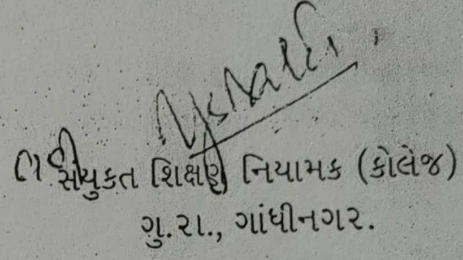 સંયુક્ત શિક્ષણ નિયામક (કોલેજ)
ગુ.રા., ગાંધીનગર.